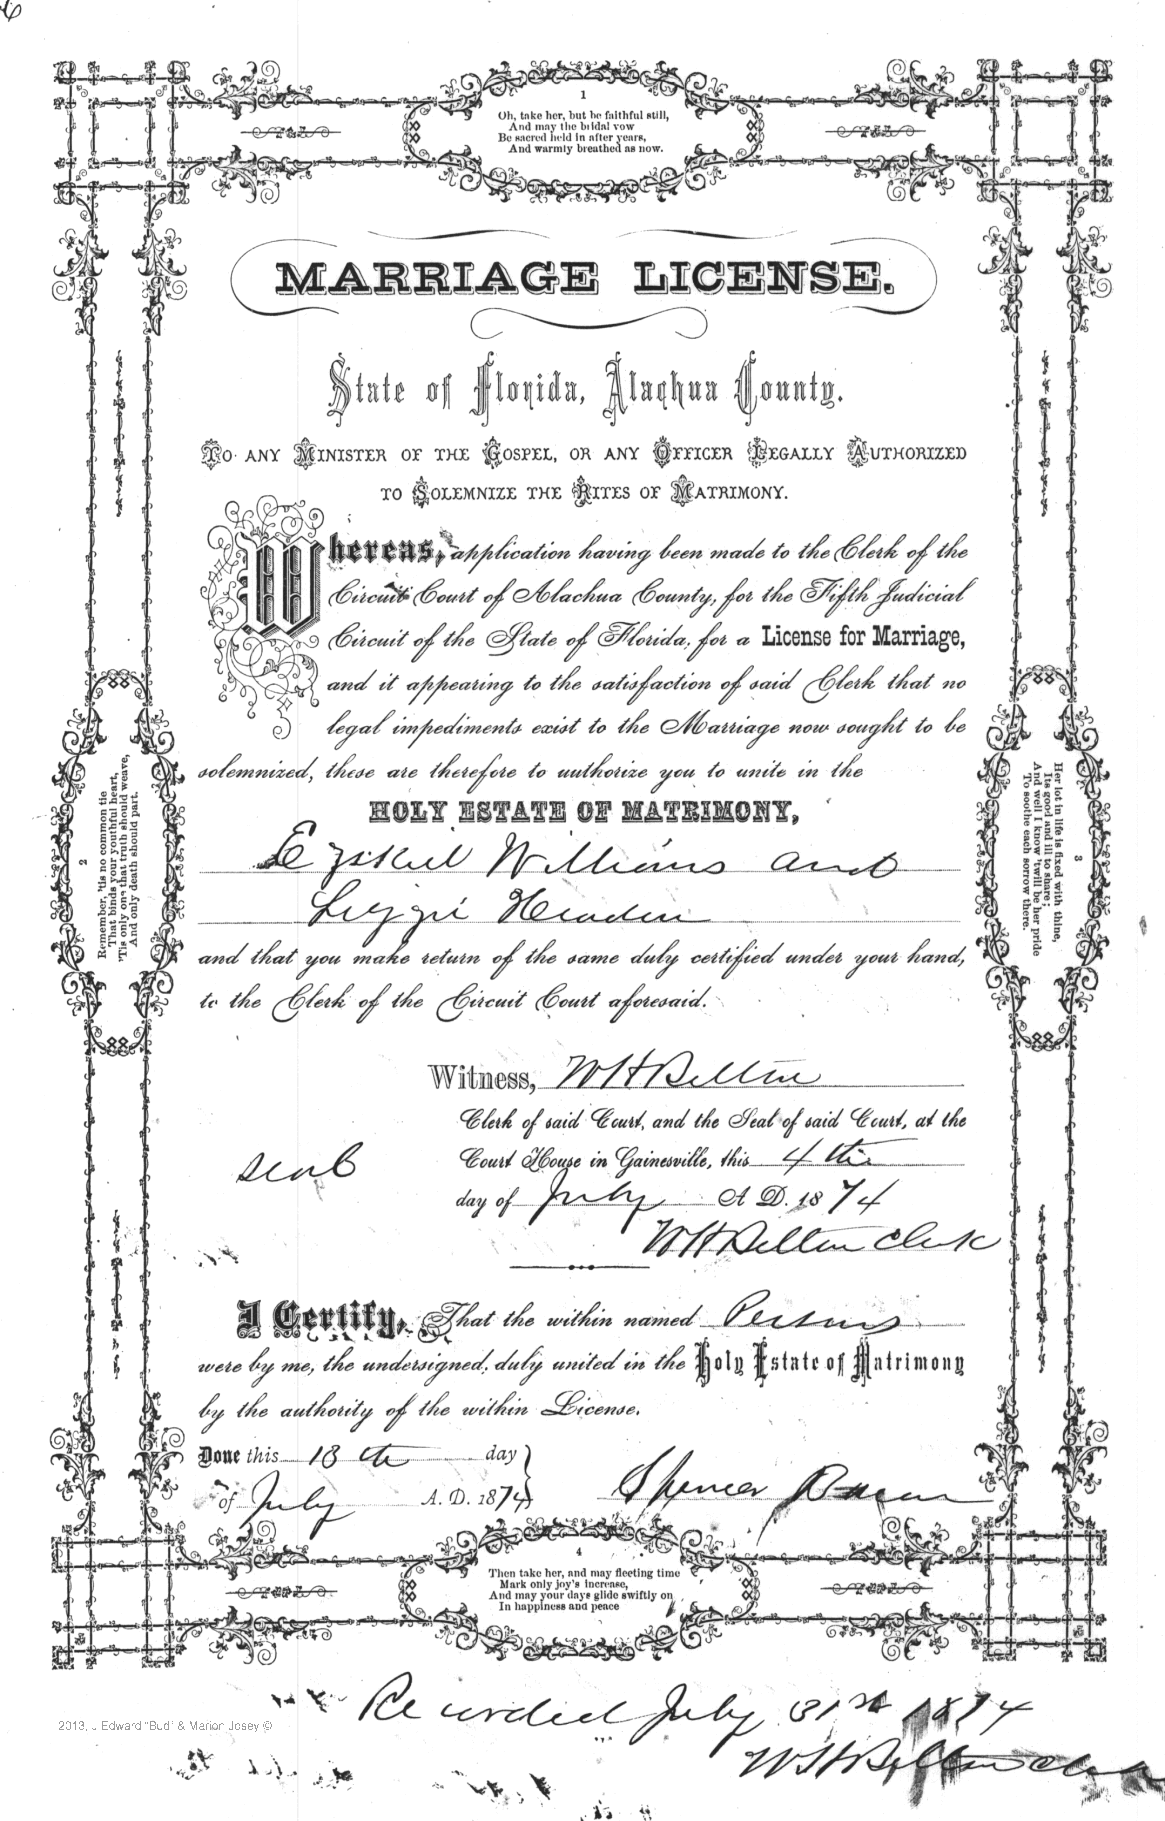 1
Oh, take her, but be faithful still,
And may the bridal vow
Be sacred held in after years,
And warmly breathed as now.
MARRIAGE LICENSE.
State of Florida, Alachua County.
TO ANY MINISTER OF THE GOSPEL, OR ANY OFFICER LEGALLY AUTHORIZED
TO SOLEMNIZE THE RITES OF MATRIMONY.
Whereas, application having been made to the Clerk of the
Circuit Court of Alachua County, for the Fifth Judicial
Circuit of the State of Florida, for a License for Marriage,
and it appearing to the satisfaction of said Clerk that no
legal impediments exist to the Marriage now sought to be
solemnized, these are therefore to authorize you to unite in the
HOLY ESTATE OF MATRIMONY,
Ezekiel Williams and
Lizzie
and that you make return of the same duly certified under your hand,
to the Clerk of the Circuit Court aforesaid.
2
Remember, 'tis no common tie
That binds your youthful heart,
'Tis only one that truth should weave,
And only death should part.
3
Her lot in life is fixed with thine,
Its good and ill to share;
And well I know 'twill be her pride
To soothe each sorrow there.
Witness, W H Belton
Clerk of said Court, and the Seal of said Court, at the
Court House in Gainesville, this 4th
seal
day of July A D. 1874
W H Belton Clerk
I Certify, That the within named Persons
were by me, the undersigned, duly united in the Holy Estate of Matrimony
by the authority of the within License.
Done this 18th day
of July A. D. 1874
Spencer
4
Then take her, and may fleeting time
Mark only joy's increase,
And may your days glide swiftly on
In happiness and peace
Recorded July 31st 1874
W H Belton Clerk
2013, J Edward "Bud" & Marion Josey ©